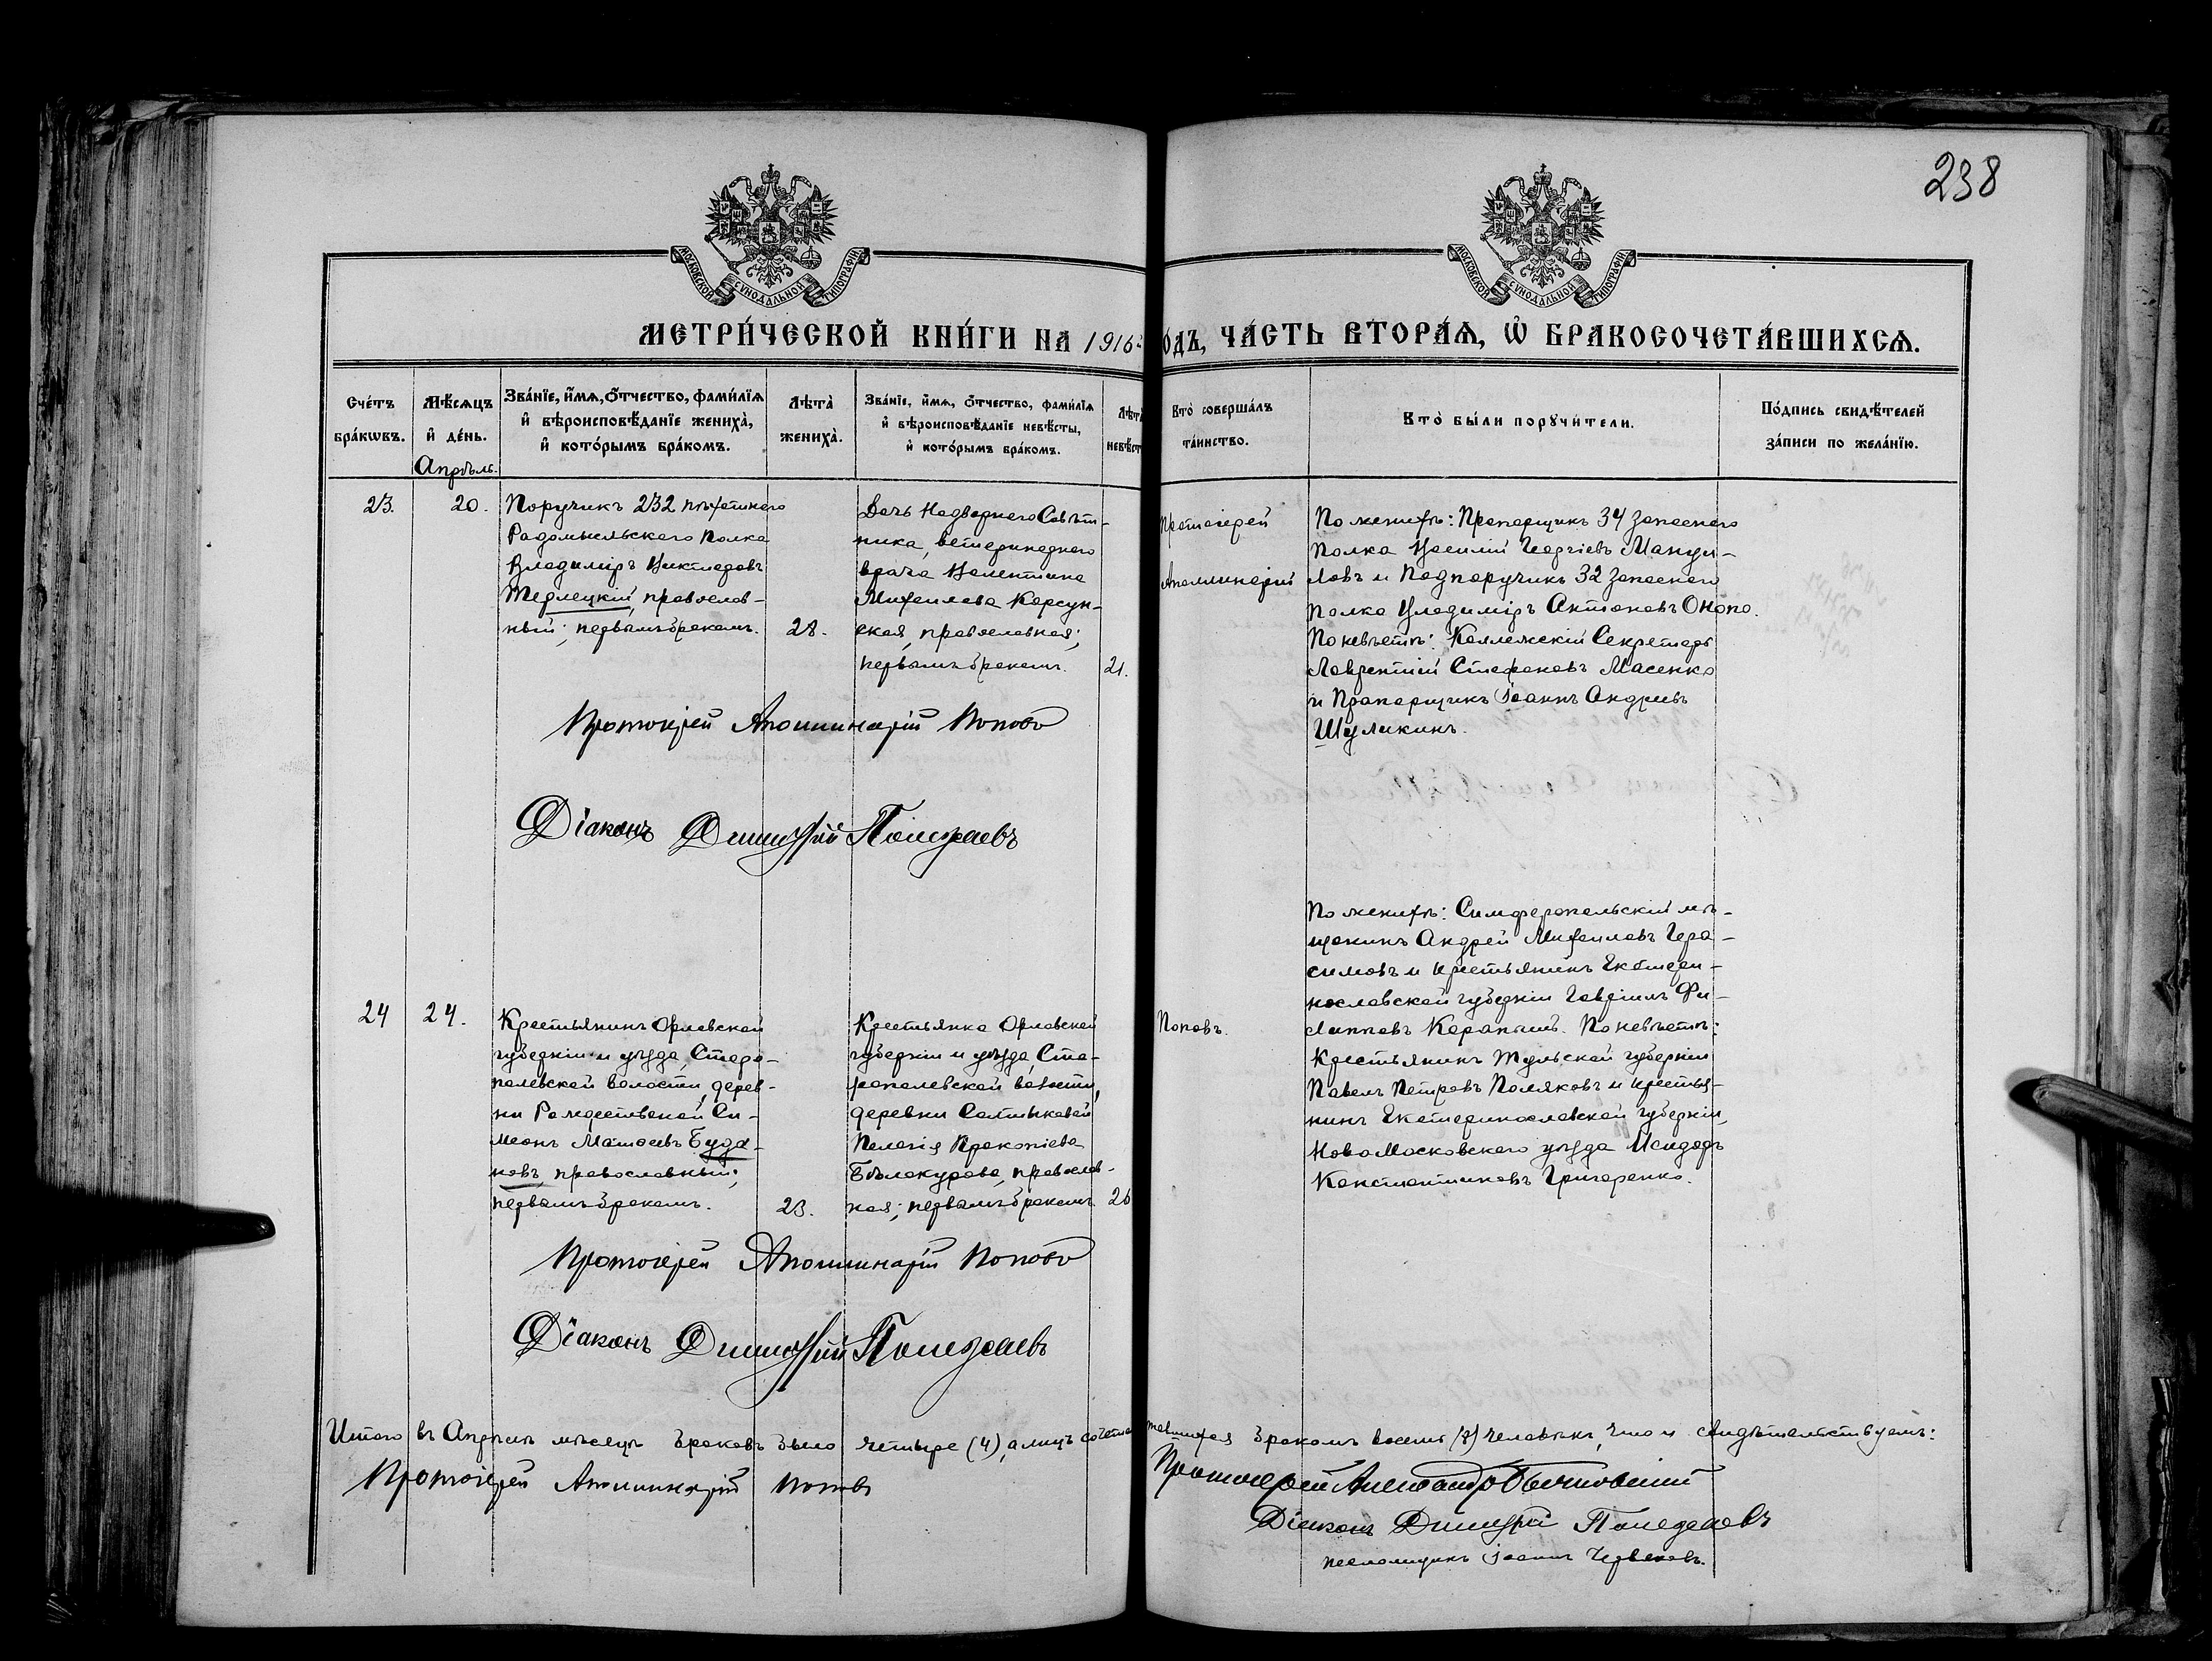 238
МОСКОВСКОЙ СУНОДАЛЬНОЙ ТИПОГРАФІИ
МОСКОВСКОЙ СУНОДАЛЬНОЙ ТИПОГРАФІИ
МЕТРИ́ЧЕСКОЙ КНИ́ГИ НА 1916 г
О́ДЪ, ЧА́СТЬ ВТОРА́Ѧ, Ѡ҆ БРАКОСОЧЕТА́ВШИХСѦ.
Сче́тъ
бра́кѡвъ.
Мѣ́сѧцъ
и҆ де́нь.
Апрѣль.
Зва́нїе, и҆́мѧ, ѻ҆́тчество, фами́лїѧ
и҆ вѣроисповѣ́данїе жениха̀,
и҆ кото́рымъ бра́комъ.
Лѣта̀
жениха̀.
Зва́нїе, и҆́мѧ, ѻ҆́тчество, фами́лїѧ
и҆ вѣроисповѣ́данїе невѣ́сты,
и҆ кото́рымъ бра́комъ.
Лѣта
невѣст
Кто̀ соверша́лъ
та́инство.
Кто̀ бы́ли порꙋчи́тели.
По́дпись свидѣ́телей
за́писи по жела́нїю.
23.
20.
Поручикъ 232 пѣхотнаго
Радомысльскаго полка
Владиміръ Викторовъ
Терлецкій, православ-
ный; первымъ бракомъ.
28.
Дочь Надворнаго Совѣт-
ника, ветеринарнаго
врача Валентина
Михаилова Корсун-
ская, православная;
первымъ бракомъ.
21.
Протоіерей
Аполлинарій
По женихѣ: Прапорщикъ 34 запаснаго
полка Василій Георгіевъ Мануи-
ловъ и Подпоручикъ 32 запаснаго
полка Владиміръ Антоновъ Онопо.
По невѣстѣ: Коллежскій Секретарь
Лаврентій Стефановъ Масенко
и Прапорщикъ Іоаннъ Андреевъ
Шуликинъ.
Протоіерей Аполлинарій Поповъ
Діаконъ Димитрій Полежаевъ
24
24.
Крестьянинъ Орловской
губерніи и уѣзда, Старо-
полевской волости, дерев-
ни Рождественской Си-
меонъ Матѳеевъ Буда-
новъ, православный;
первымъ бракомъ.
23.
Крестьянка Орловской
губерніи и уѣзда, Ста-
рополевской волости,
деревни Салтыковой
Пелагія Прокопіева
Бѣлокурова, православ-
ная; первымъ бракомъ
26
Поповъ.
По женихѣ: Симферопольскій мѣ-
щанинъ Андрей Михаиловъ Гера-
симовъ и крестьянинъ Екатери-
нославской губерніи Гавріилъ Фи-
липповъ Карапышъ. По невѣстѣ:
Крестьянинъ Тульской губерніи
Павелъ Петровъ Поляковъ и крестья-
нинъ Екатеринославской губерніи,
НовоМосковскаго уѣзда Исидоръ
Константиновъ Григоренко.
Протоіерей Аполлинарій Поповъ
Діаконъ Димитрій Полежаевъ
Итого въ Апрѣлѣ мѣсяцѣ браковъ было четыре (4), а лицъ сочетавшихся бракомъ восемь (8) человѣкъ, что и свидѣтельствуемъ:
Протоіерей Аполлинарій Поповъ
Протоіерей Александръ
Діаконъ Димитрій Полежаевъ
псаломщикъ Іоаннъ Червяковъ.